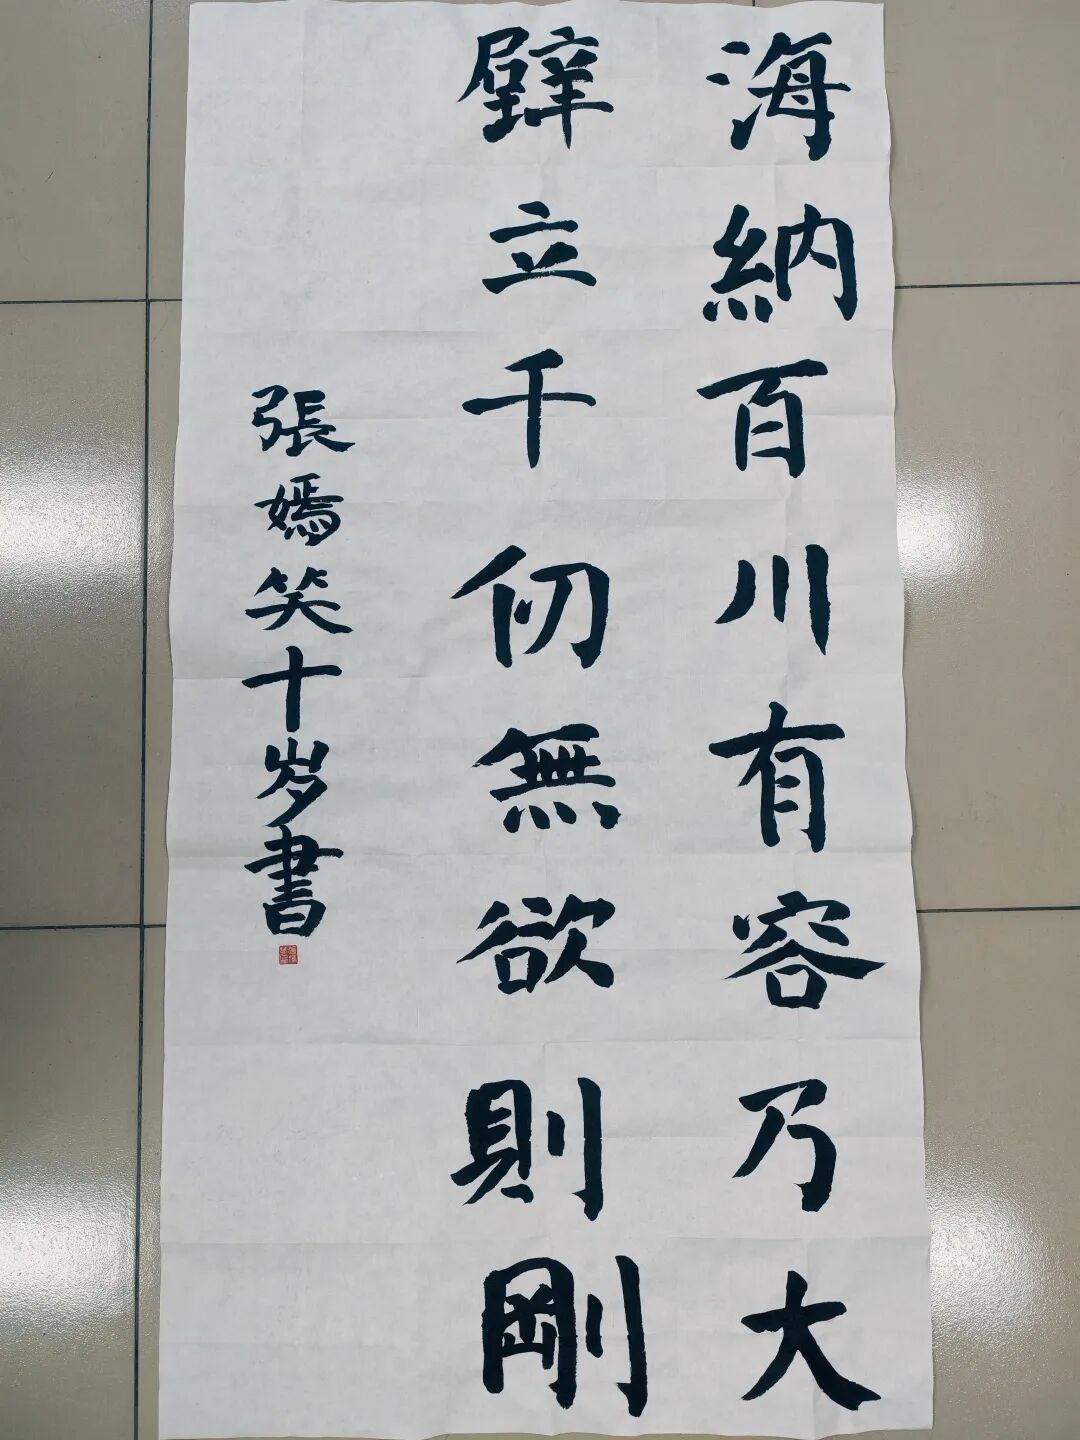 海納百川有容乃大
壁立千仞無欲則剛
張嫣笑十岁書